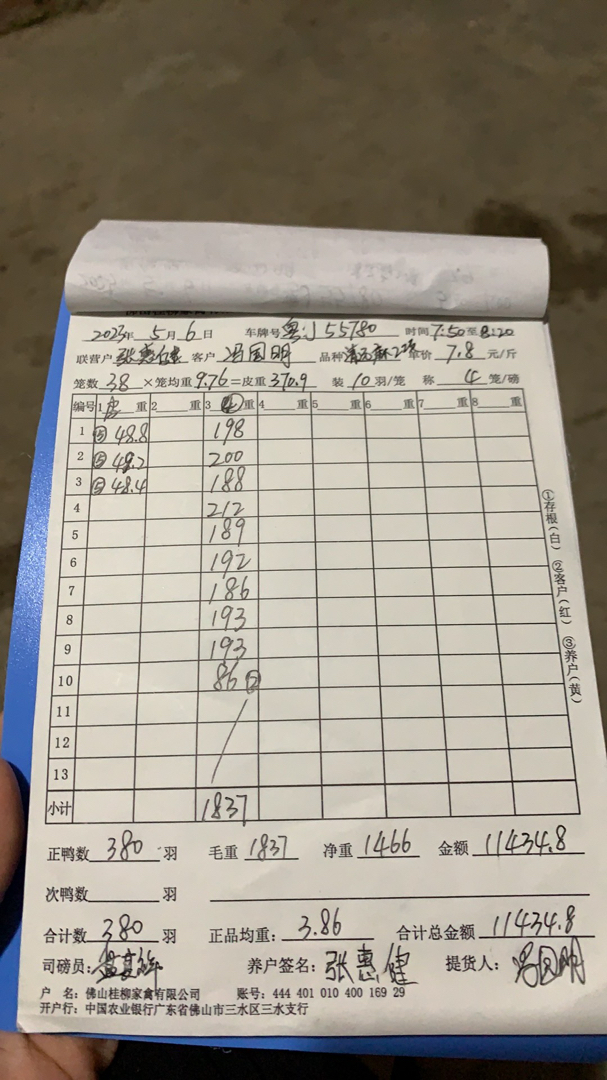 2023年 5月 6日 车牌号 粤J55780 时间 7:50至8:20
联营户 张惠健 客户 冯国明 品种 单价 7.8 元/斤
笼数 38 ×笼均重 9.76 =皮重 370.9 装 10 羽/笼 称 4 笼/磅
编号 1 皮 重 2 重 3 ④ 重 4 重 5 重 6 重 7 重 8 重
1 ⑤ 48.8 198
2 ⑤ 48.2 200
3 ⑤ 48.4 188
4 212
5 189
6 192
7 186
8 193
9 193
10 86 ②
11
12
13
小计 1837
①存根(白) ②客户(红) ③养户(黄)
正鸭数 380 羽 毛重 1837 净重 1466 金额 11434.8
次鸭数 羽
合计数 380 羽 正品均重: 3.86 合计总金额 11434.8
司磅员: 养户签名: 张惠健 提货人: 冯国明
户 名: 佛山桂柳家禽有限公司 账号: 444 401 010 400 169 29
开户行: 中国农业银行广东省佛山市三水区三水支行